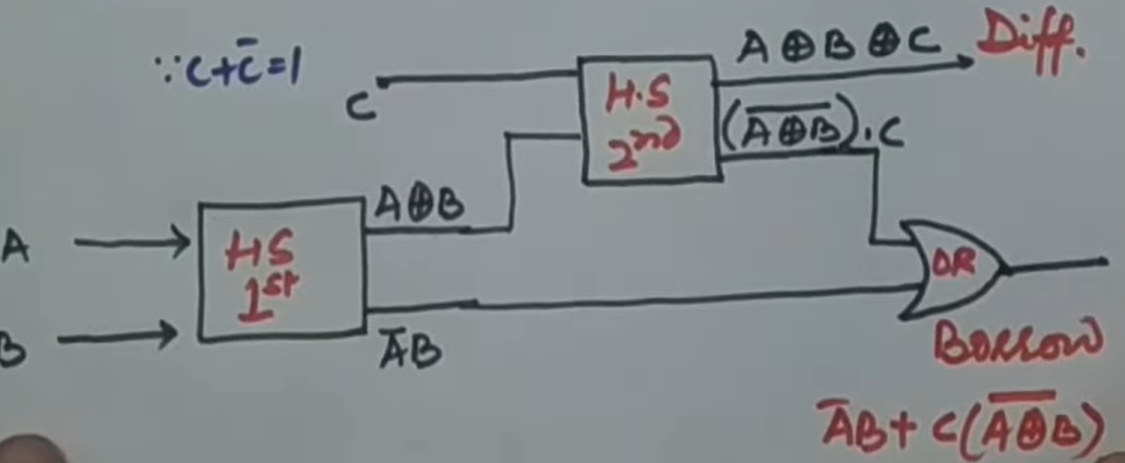 ∵C+C̅=1
C
H.S
2nd
A⊕B⊕C
Diff.
(A̅⊕̅B̅).C
A
B
HS
1st
A⊕B
A̅B
OR
Borrow
A̅B+C(A̅⊕̅B̅)